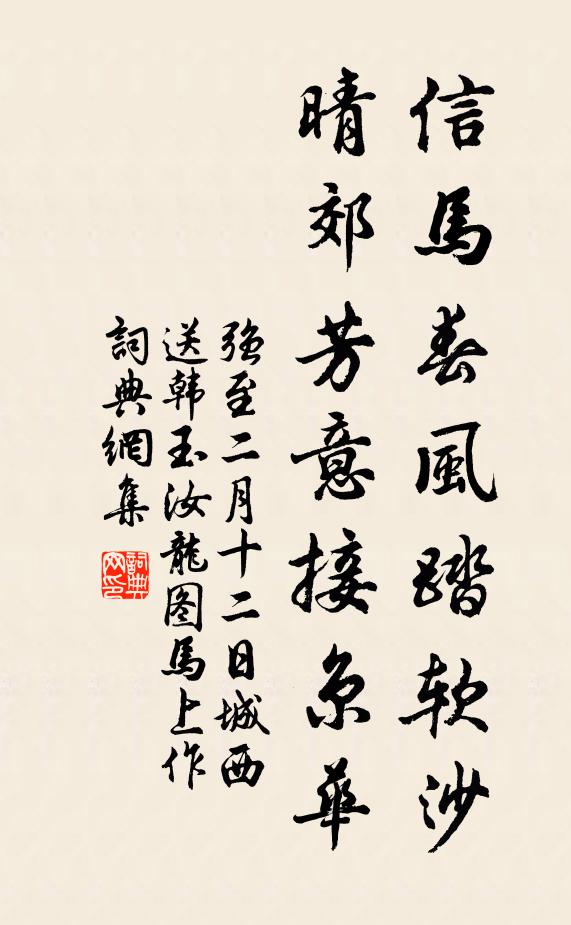 信馬春風踏软沙
晴郊芳意接京華
强至二月十二日城西
送韩玉汝龍图馬上作
詞典網集
詞典网印